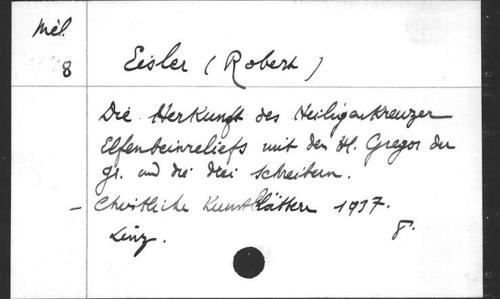 Mél.
8
Eisler (Robert)
Die Herkunft des Heiligenkreuzer
Elfenbeinreliefs mit den Hl. Gregor der
gr. und die drei Schreibern.
– Christliche Kunstblätter 1937.
Linz. 8°.